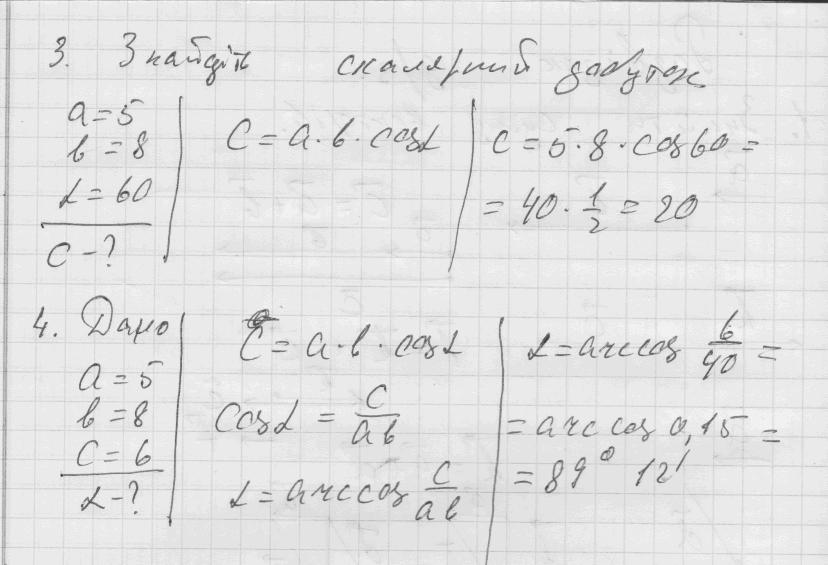 3. Знайдіть скалярний добуток
a = 5
b = 8
α = 60
c - ?
c = a · b · cosα
c = 5 · 8 · cos 60 =
= 40 · 1/2 = 20
4. Дано
a = 5
b = 8
c = 6
α - ?
c = a · b · cosα
cosα = c/ab
α = arccos c/ab
α = arccos 6/40 =
= arccos 0,15 =
= 89° 12'